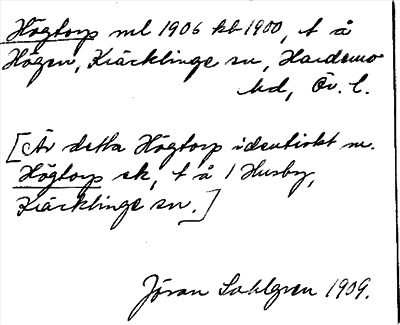 Högtorp ml 1906 kb 1900, t å
Högen, Kräcklinge sn, Hardemo
hd, Ör. l.
[Är detta Högtorp identiskt m.
Högtorp sk, t å 1 Husby,
Kräcklinge sn.]
Jöran Sahlgren 1909.